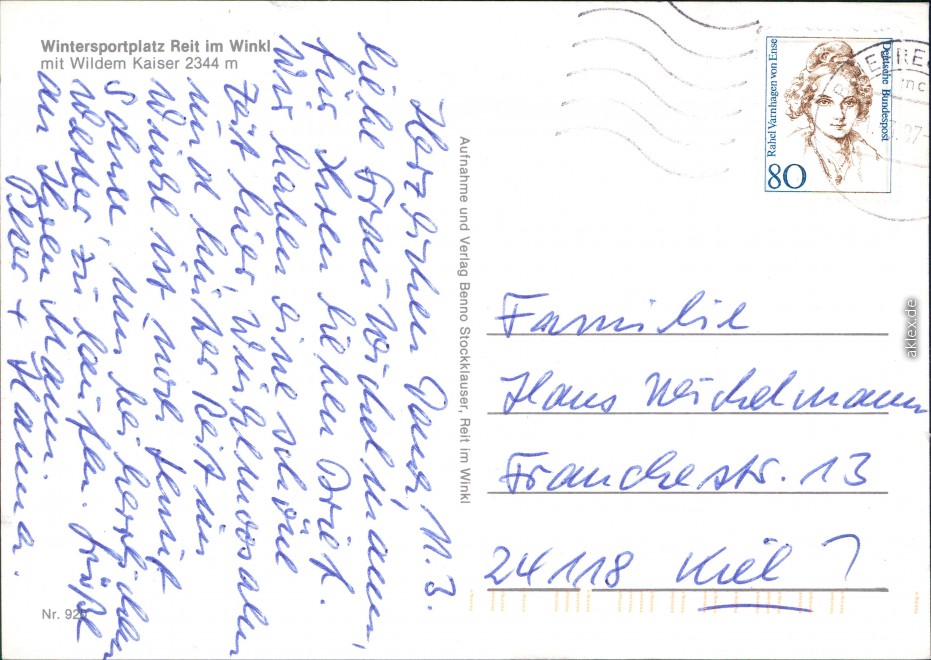 Wintersportplatz Reit im Winkl
mit Wildem Kaiser 2344 m
Herzlichen Dank,
liebe Frau Weichelmann,
für Ihren lieben Brief.
Wir haben eine schöne
Zeit hier
und hinter Reit im
Winkl ist noch
Schnee, um bei herrlichem
Wetter zu laufen. Grüße
an Ihren Mann.
Peter + Hanna.
Nr. 925
Aufnahme und Verlag Benno Stockklauser, Reit im Winkl
Rahel Varnhagen von Ense
Deutsche Bundespost
80
Familie
Hans Weichelmann
Franckestr. 13
24118 Kiel
aklex.de